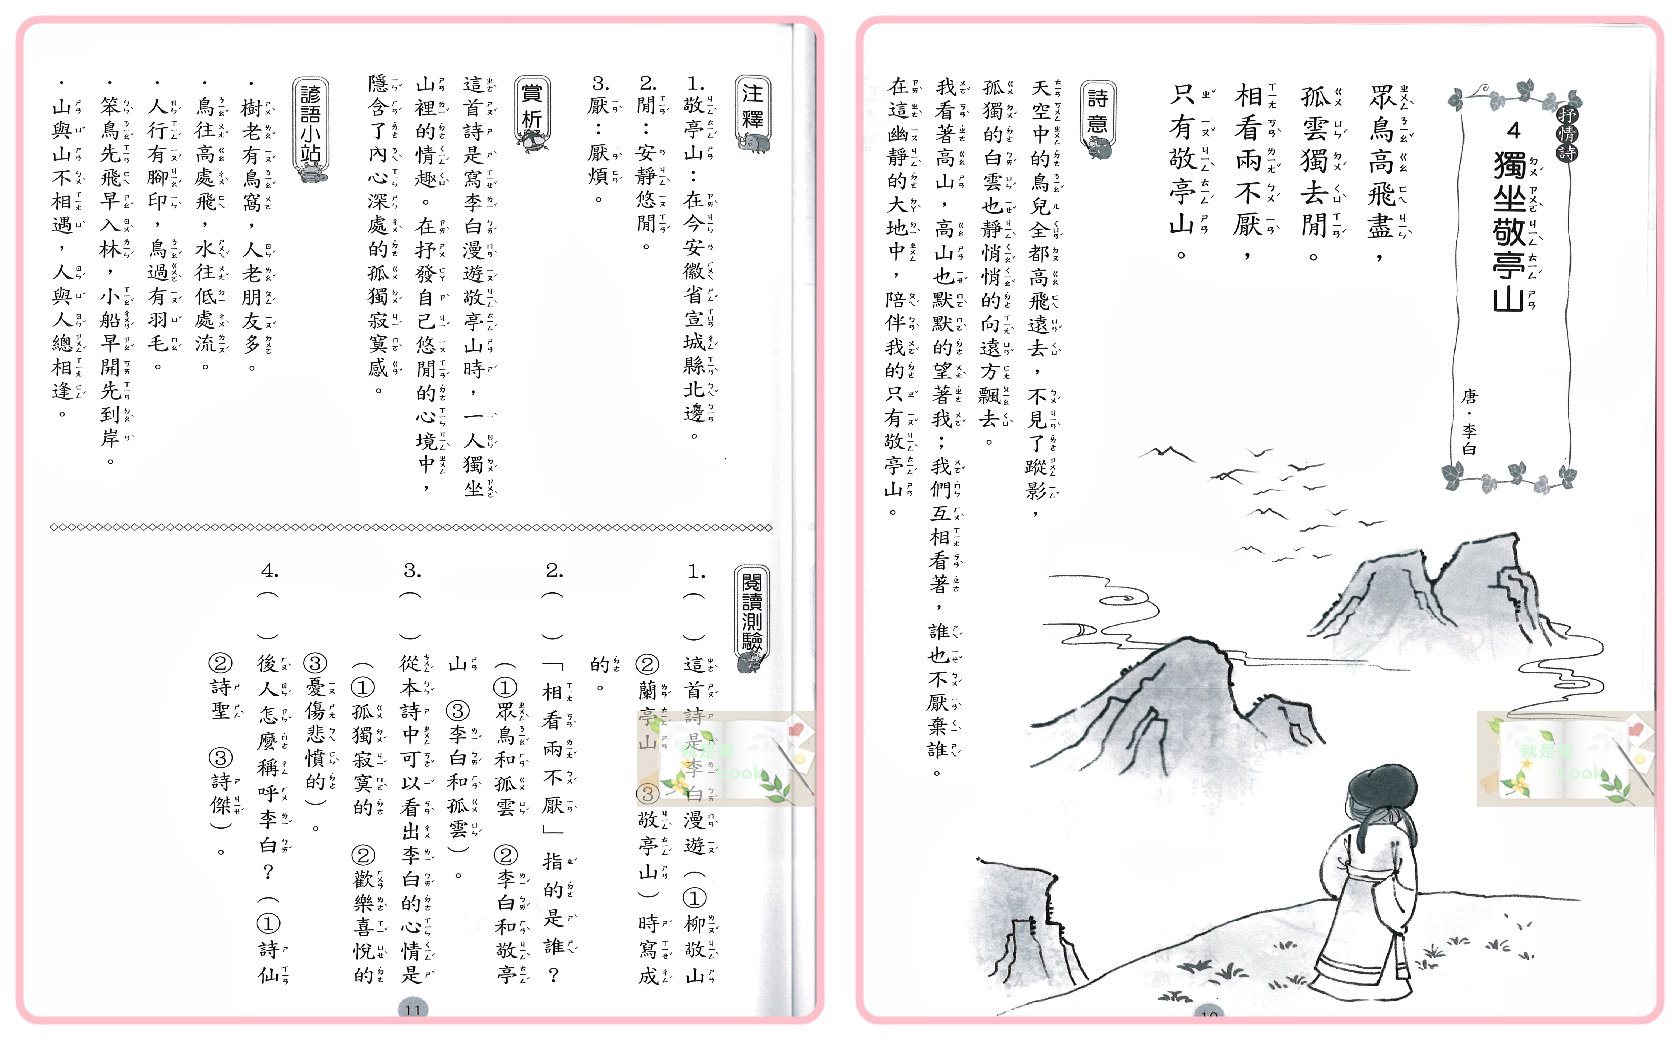 抒情詩
4 獨坐敬亭山
唐．李白
眾鳥高飛盡，
孤雲獨去閒。
相看兩不厭，
只有敬亭山。
詩意
天空中的鳥兒全都高飛遠去，不見了蹤影，
孤獨的白雲也靜悄悄的向遠方飄去。
我看著高山，高山也默默的望著我；我們互相看著，誰也不厭棄誰。
在這幽靜的大地中，陪伴我的只有敬亭山。
10
注釋
1.敬亭山：在今安徽省宣城縣北邊。
2.閒：安靜悠閒。
3.厭：厭煩。
賞析
這首詩是寫李白漫遊敬亭山時，一人獨坐
山裡的情趣。在抒發自己悠閒的心境中，
隱含了內心深處的孤獨寂寞感。
諺語小站
．樹老有鳥窩，人老朋友多。
．鳥往高處飛，水往低處流。
．人行有腳印，鳥過有羽毛。
．笨鳥先飛早入林，小船早開先到岸。
．山與山不相遇，人與人總相逢。
閱讀測驗
1.（　）這首詩是李白漫遊（①柳敬山
②蘭亭山　③敬亭山）時寫成
的。
2.（　）「相看兩不厭」指的是誰？
（①眾鳥和孤雲　②李白和敬亭
山　③李白和孤雲）。
3.（　）從本詩中可以看出李白的心情是
（①孤獨寂寞的　②歡樂喜悅的
③憂傷悲憤的）。
4.（　）後人怎麼稱呼李白？（①詩仙
②詩聖　③詩傑）。
11
就是愛
book
就是愛
book